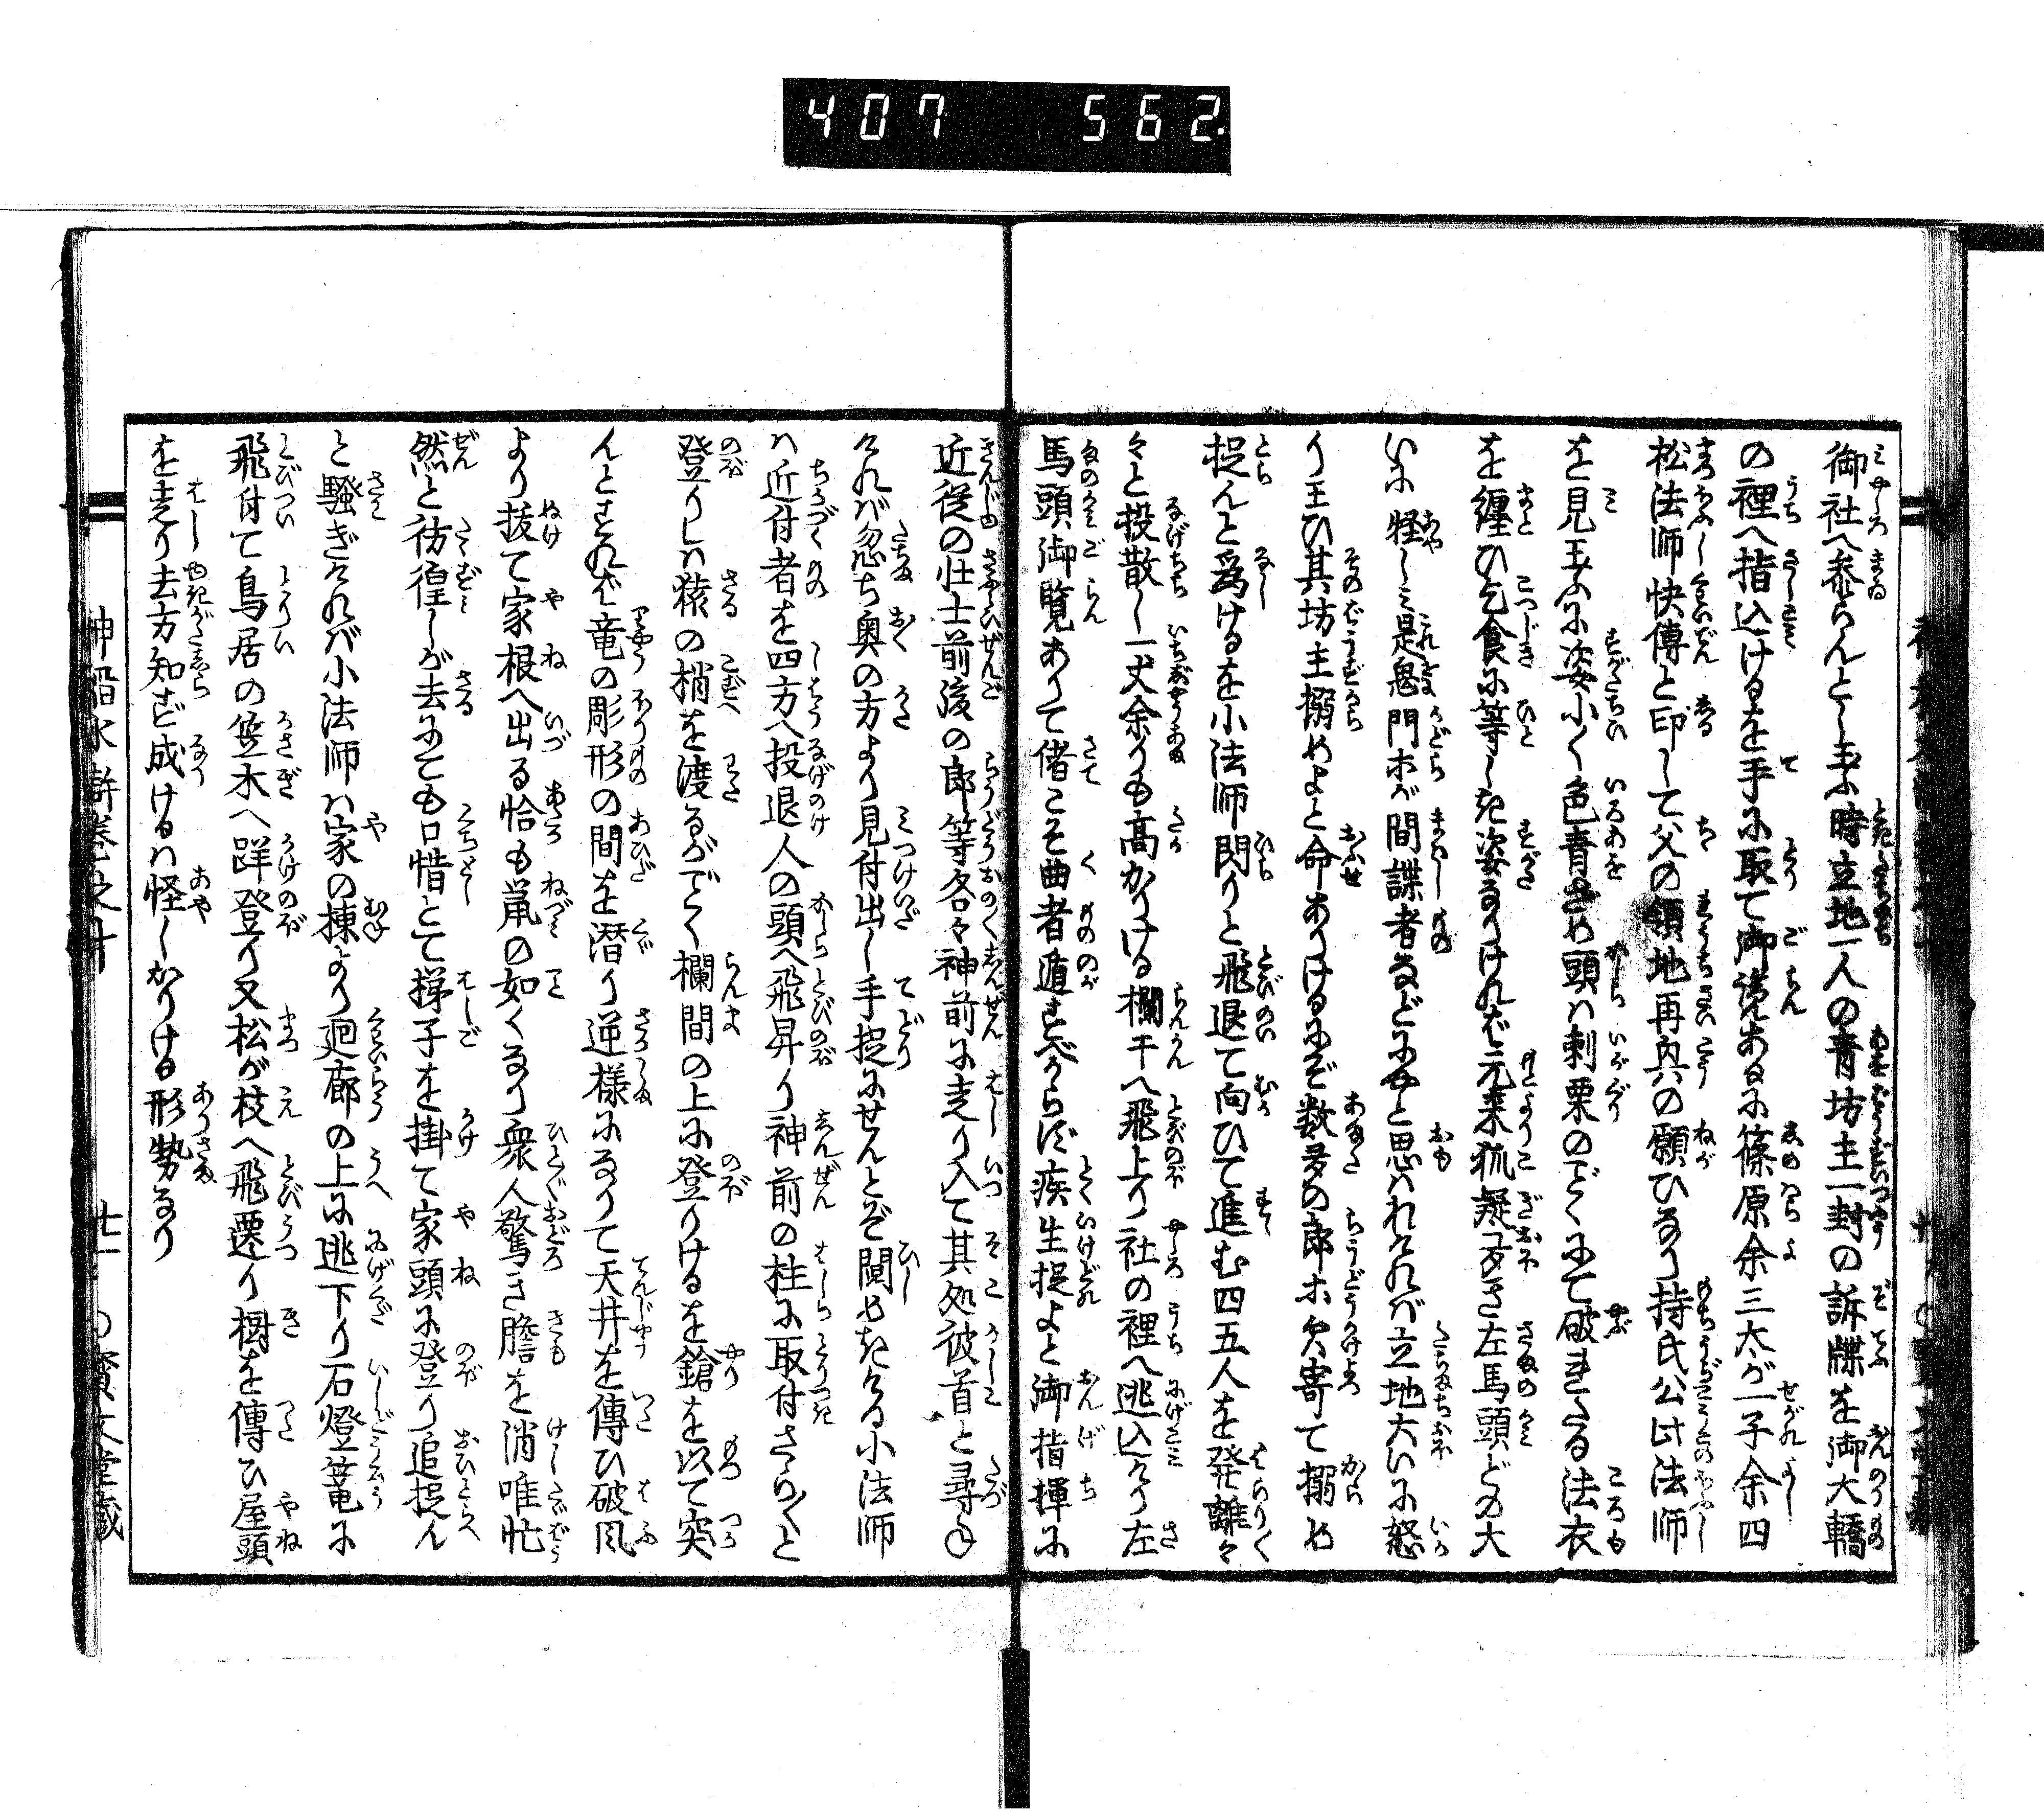 407 562.
御社へ参らんとし玉ふ時立地一人の青坊主一封の訴牒を御大轎
の裡へ指込けるを手に取て御覧あるに篠原余三太が一子余四
松法師快傳と印して父の領地再興の願ひなり持氏公此法師
を見玉ふに姿小く色青ざめ頭ハ刺栗のごとくにて破れたる法衣
を纏ひ乞食に等しき姿なりけれバ元来狐疑ふかき左馬頭どの大
いに怪しミ是鬼門ホが間諜者などにやと思ハれけれバ立地大いに怒
り玉ひ其坊主搦めよと命ありけるにぞ数多の郎ホ欠寄て搦め
捉んと為けるを小法師閃りと飛退て向ひて進む四五人を発離々
々と投散し一丈余りも高かりける欄干へ飛上り社の裡へ逃込けり左
馬頭御覧あつて偖こそ曲者遁すべからず疾生捉よと御指揮に
近従の壮士前後の郎等各々神前に走り入て其処彼首と尋ね
けれバ忽ち奥の方より見付出し手捉にせんとぞ鬩めきける小法師
ハ近付者を四方へ投退人の頭へ飛昇り神前の柱に取付さら〳〵と
登りしハ猿の梢を渡るがごとく欄間の上に登りけるを鎗を以て突
んとすれバ竜の彫形の間を潜り逆様になりて天井を傳ひ破風
より抜て家根へ出る恰も鼠の如くなり衆人驚き膽を消唯忙
然と彷徨しが去にても口惜とて梯子を掛て家頭に登り追捉ん
と騒ぎけれバ小法師ハ家の棟より廻廊の上に逃下り石燈篭に
飛付て鳥居の笠木へ跘登り又松が枝へ飛遷り樹を傳ひ屋頭
を走り去方知ず成けるハ怪しかりける形勢なり
神稲水滸巻之廿
廿一